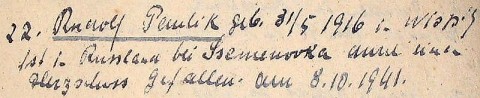 22. Rudolf Pawlik geb. 31/5 1916 in
Ist in Russland bei Ssemenowka durch einen
Herzschuss Gefallen. am 8.10.1941.